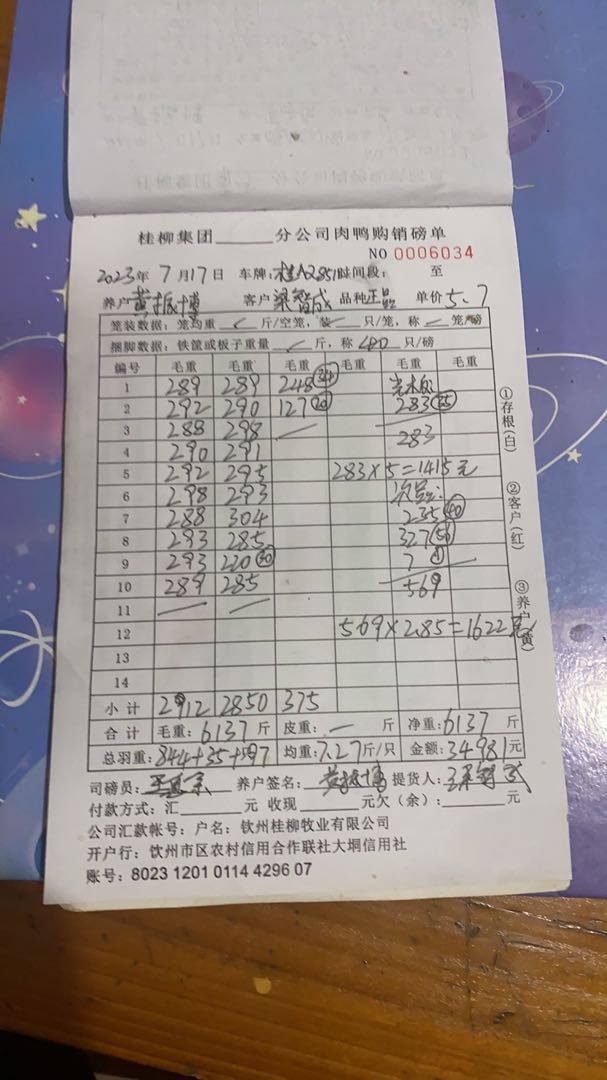 桂柳集团______分公司肉鸭购销磅单
NO 0006034
2023年 7月17日 车牌:桂A2851时间段: 至
养户 黄振博 客户 梁智成 品种 正品 单价 5.7
笼装数据:笼均重 斤/空笼,装 只/笼,称 笼/磅
捆脚数据:铁筐或板子重量 斤,称 40 只/磅
编号 毛重 毛重 毛重 毛重 毛重 毛重
1 289 289 248 34
2 292 290 127 20 283 35
3 288 298 — 283
4 290 291
5 292 295 283×5=1415元
6 298 293 次品:
7 288 304 235 40
8 293 285 327 56
9 293 220 30 7 1
10 289 285 569
11 — —
12 569×2.85=1622元
13
14
小计 2912 2850 375
合计 毛重:6137斤 皮重:— 斤 净重:6137斤
总羽重:844+35+97 均重:7.27斤/只 金额:34981元
司磅员: 养户签名:黄振博 提货人:
付款方式:汇______元 收现______元欠(余):______元
公司汇款帐号:户名:钦州桂柳牧业有限公司
开户行:钦州市区农村信用合作联社大垌信用社
账号:8023 1201 0114 4296 07
①存根(白)
②客户(红)
③养户(黄)